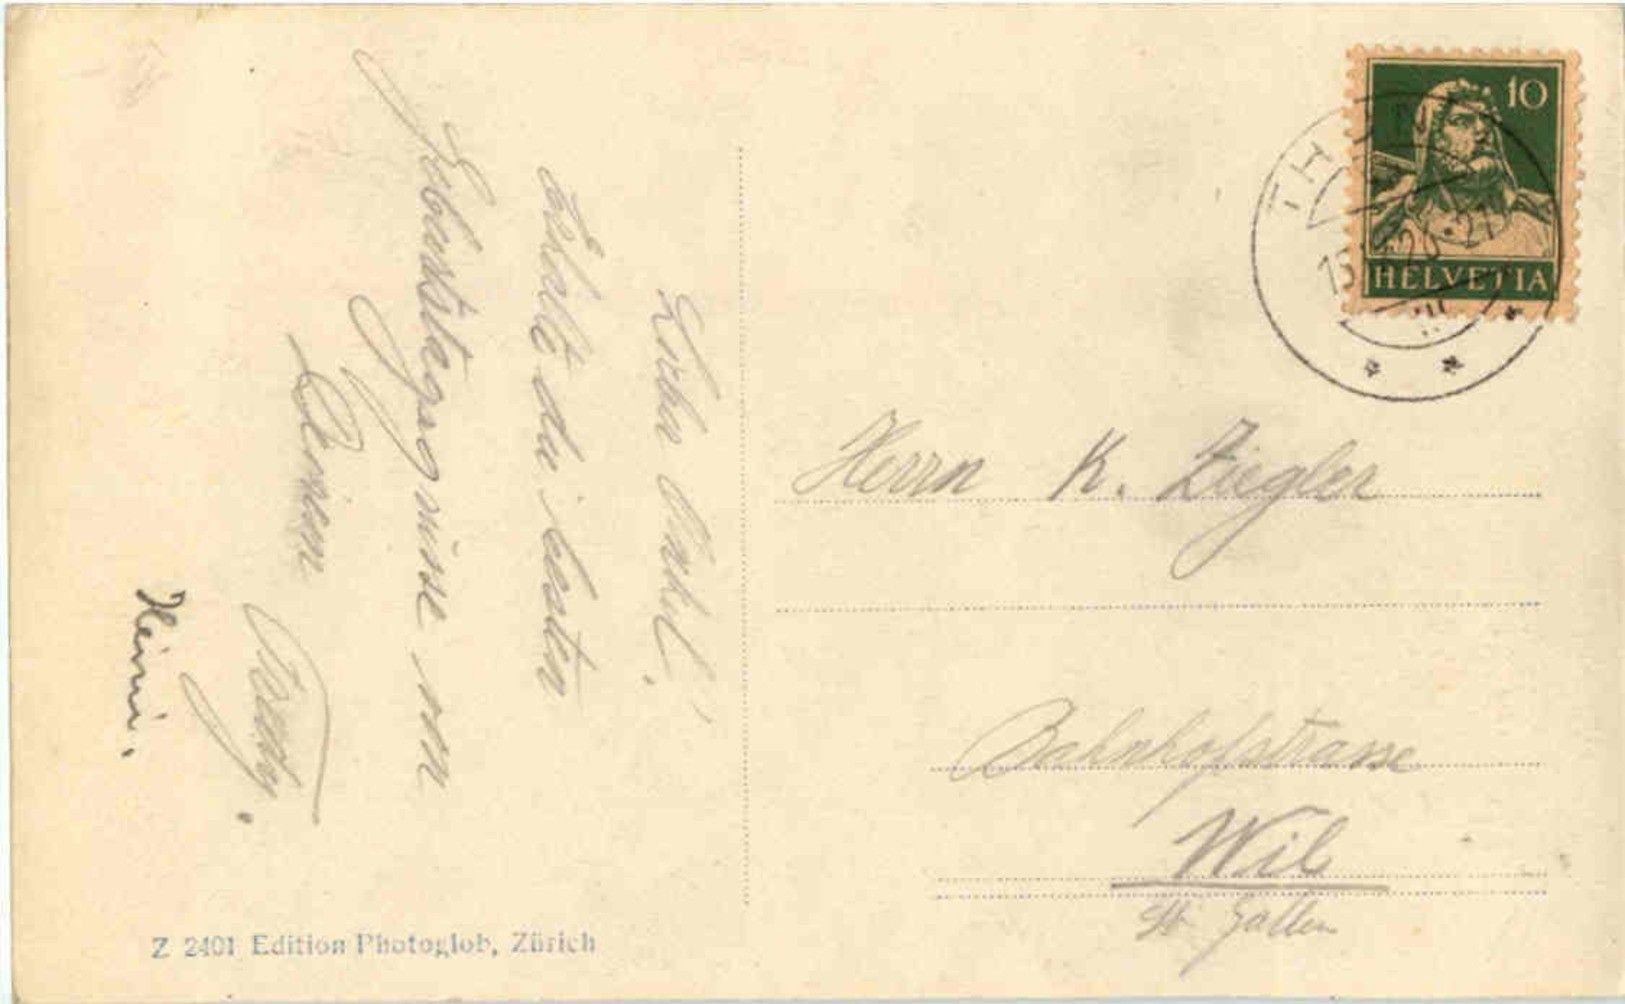 Lieber Onkel!
Erhalte die besten
Geburtstagsgrüsse von
Deinem
Heini.
10
HELVETIA
Herrn K. Ziegler
Bahnhofstrasse
Wil
St. Gallen
Z 2401 Edition Photoglob, Zürich